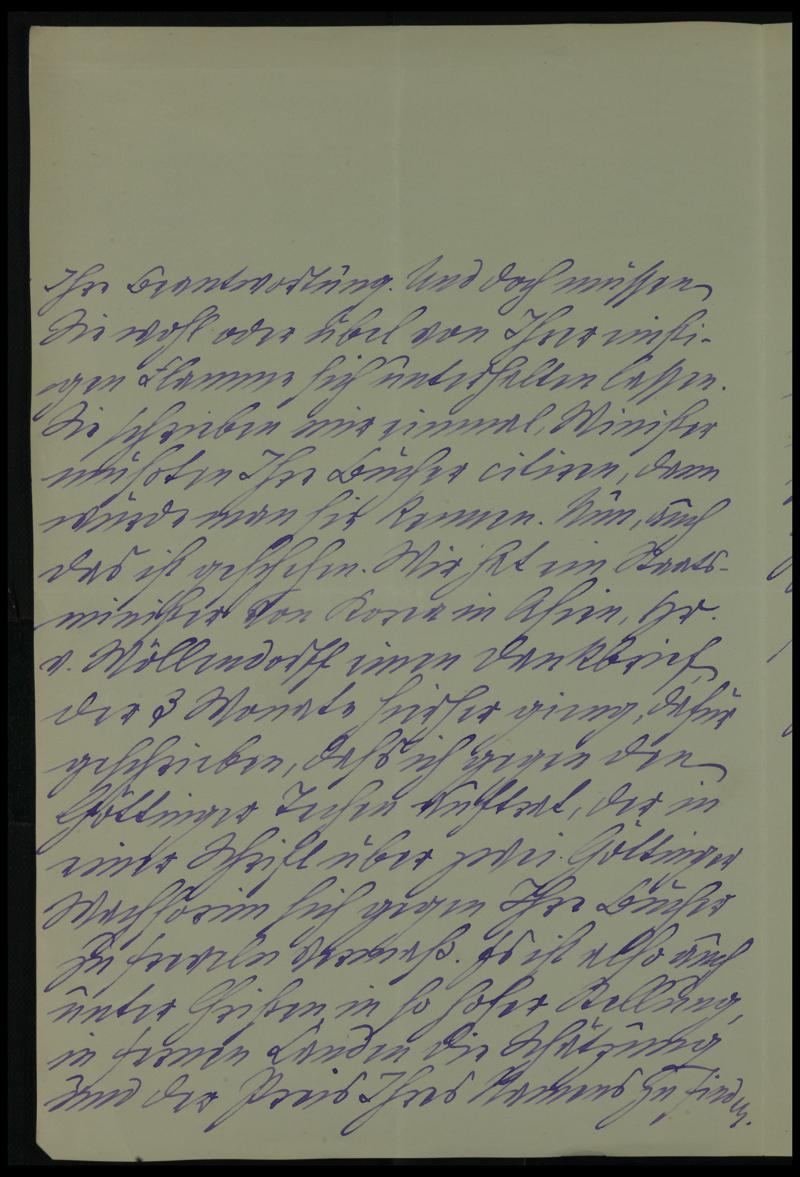 Ihre Beantwortung. Und doch müssen
Sie wohl oder übel von Ihrer einsti-
gen Flamme sich unterhalten lassen.
Sie schrieben mir einmal, Minister
müßten Ihre Bücher citiren, dann
würde man sie kennen. Nun, auch
das ist geschehen. Mir hat ein Staats-
minister von Korea in Asien, Hr.
v. Möllendorff einen Dankbrief
der 3 Monate hierher gieng, dafür
geschrieben, daß ich gegen den
Göttinger auftrat, der in
einer Schrift über zwei Göttinger
sich gegen Ihre Bücher
zu freveln vermaß. Es ist also auch
unter Christen in so hoher Stellung,
in fernen Landen die Schätzung
und der Preis Ihres Namens zu finden.